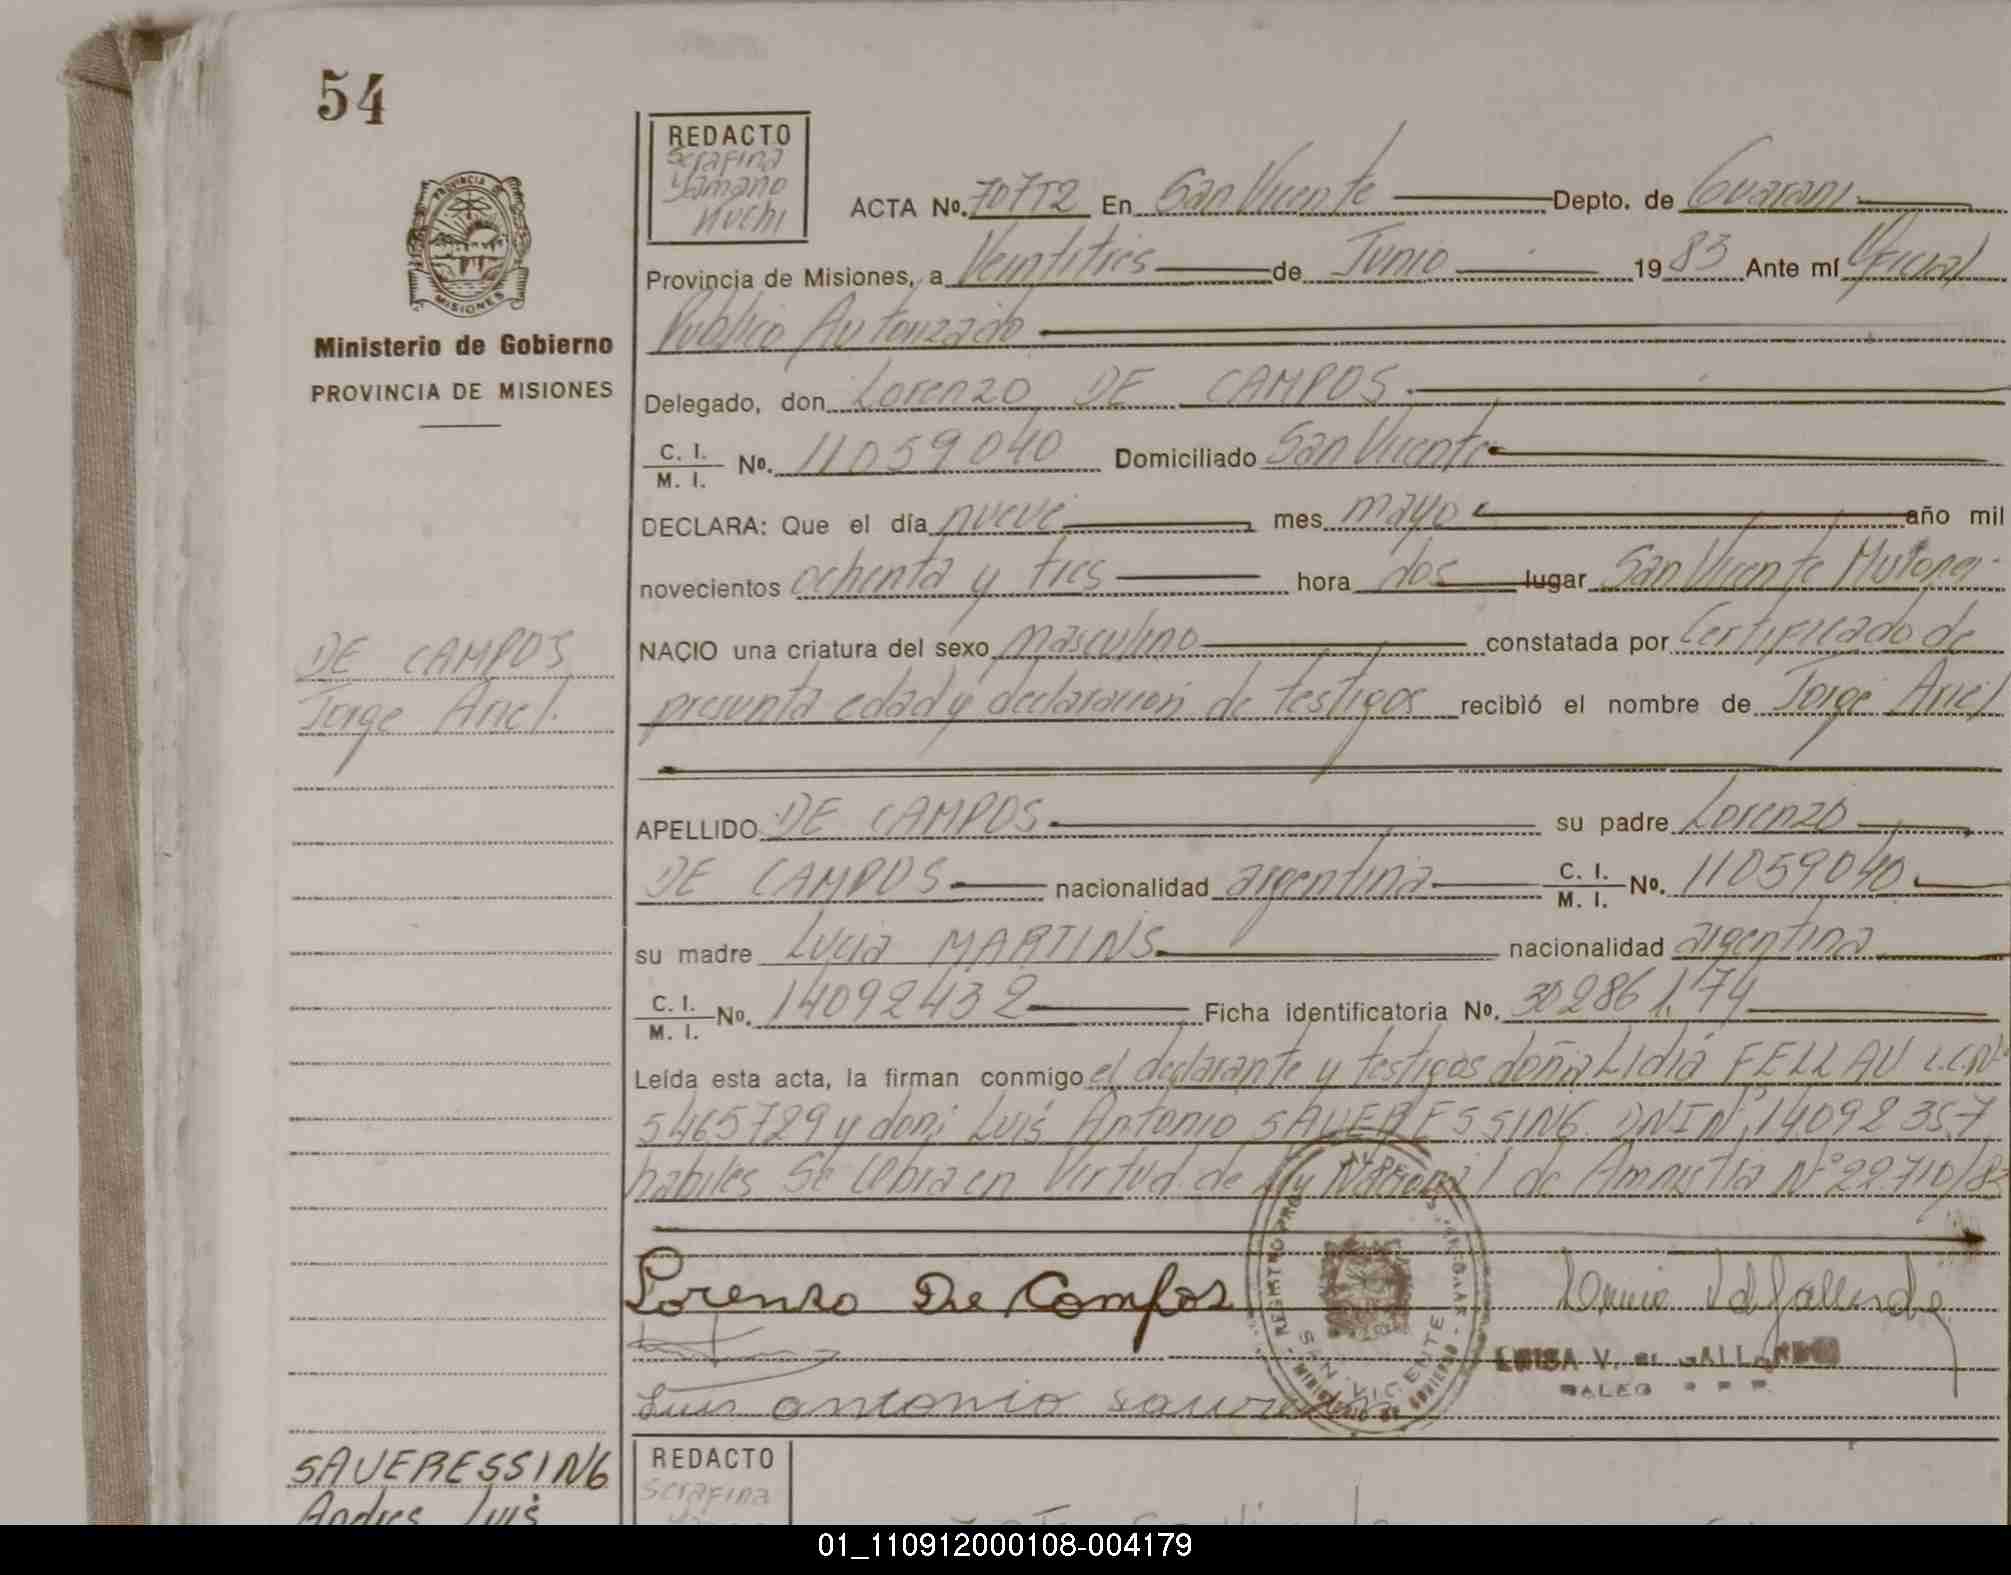 54
REDACTO
Serafina
Yamano
Nuchi
ACTA No. En San Vicente Depto. de Guarani
PROVINCIA DE
MISIONES
Provincia de Misiones, a Veintitres de Junio 1983 Ante mí Oficial
Publico Autorizado
Ministerio de Gobierno
PROVINCIA DE MISIONES
Delegado, don Lorenzo DE CAMPOS
C. I. / M. I. No. 11059040 Domiciliado San Vicente
DECLARA: Que el día nueve mes mayo año mil
novecientos ochenta y tres hora dos lugar San Vicente
NACIO una criatura del sexo masculino constatada por Certificado de
DE CAMPOS
Jorge Ariel.
presunta edad y declaracion de testigos recibió el nombre de Jorge Ariel
APELLIDO DE CAMPOS su padre Lorenzo
DE CAMPOS nacionalidad argentina C. I. / M. I. No. 11059040
su madre Lucia MARTINS nacionalidad argentina
C. I. / M. I. No. 14092432 Ficha identificatoria No. 30286174
Leída esta acta, la firman conmigo el declarante y testigos doña Lidia FELLAU L.C.Nº
5465729 y don: Luis Antonio SAUERESSING DNI Nº 14092357
habiles Se labra en Virtud de Ley Nacional de Amnistia Nº 22.710/83
Lorenzo De Campos
SAN VICENTE
LUISA V. de GALLARDO
Luis antonio
SAUERESSING
Andres Luis
REDACTO
Serafina
01_110912000108-004179